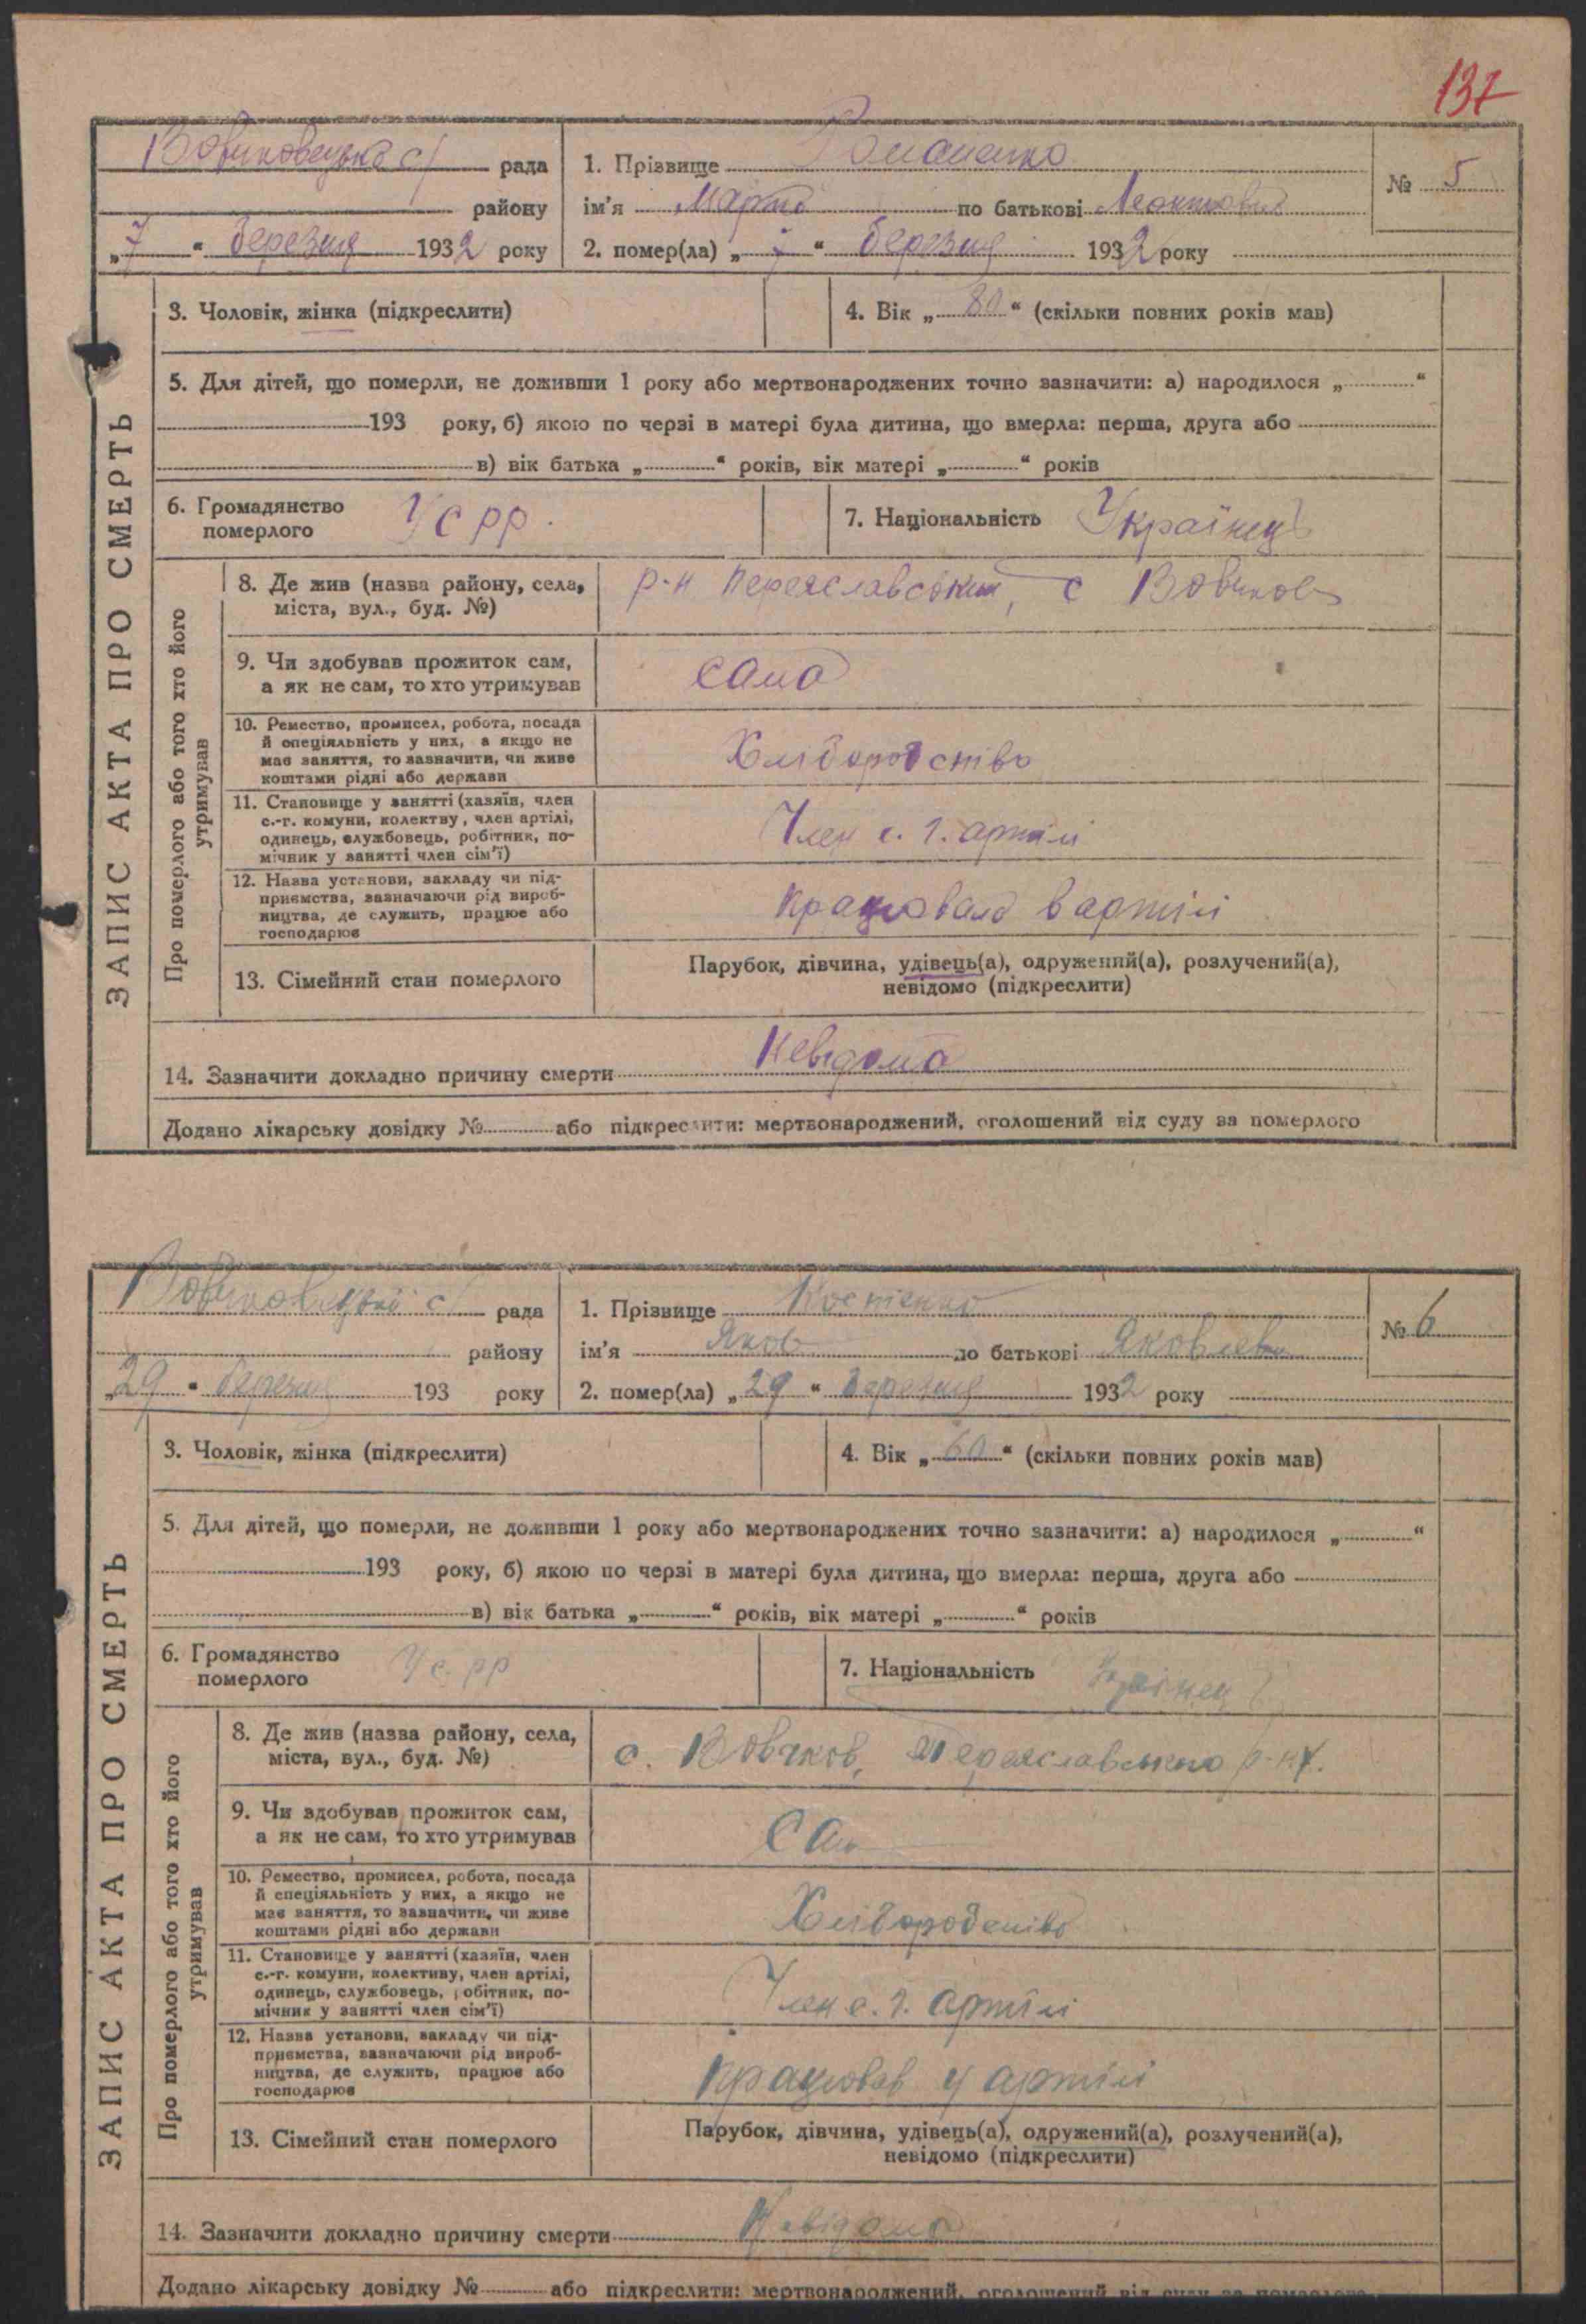 137
Вовчковецька с/ рада
району
„7“ березня 1932 року
1. Прізвище Романенко
ім'я Марта по батькові Леонтовна
2. помер(ла) „7“ березня 1932 року
№ 5
ЗАПИС АКТА ПРО СМЕРТЬ
3. Чоловік, жінка (підкреслити)
4. Вік „80“ (скільки повних років мав)
5. Для дітей, що померли, не доживши 1 року або мертвонароджених точно зазначити: а) народилося „ “
193 року, б) якою по черзі в матері була дитина, що вмерла: перша, друга або
в) вік батька „ “ років, вік матері „ “ років
6. Громадянство
померлого
УСРР.
7. Національність Українець
Про померлого або того хто його
утримував
8. Де жив (назва району, села,
міста, вул., буд. №)
р-н Переяславський, с Вовчков
9. Чи здобував прожиток сам,
а як не сам, то хто утримував
сама
10. Ремество, промисел, робота, посада
й спеціяльність у них, а якщо не
має заняття, то зазначити, чи живе
коштами рідні або держави
Хліборобство
11. Становище у занятті (хазяїн, член
с.-г. комуни, колектву, член артілі,
одинець, службовець, робітник, по-
мічник у занятті член сім'ї)
Член с. г. артілі
12. Назва установи, закладу чи під-
приємства, зазначаючи рід вироб-
ництва, де служить, працює або
господарює
працювала в артілі
13. Сімейний стан померлого
Парубок, дівчина, удівець(а), одружений(а), розлучений(а),
невідомо (підкреслити)
14. Зазначити докладно причину смерти Невідома
Додано лікарську довідку № або підкреслити: мертвонароджений, оголошений від суду за померлого
Вовчковецька с/ рада
району
„29“ березня 193 року
1. Прізвище Костенко
ім'я Яков по батькові Яковлевич
2. помер(ла) „29“ березня 1932 року
№ 6
ЗАПИС АКТА ПРО СМЕРТЬ
3. Чоловік, жінка (підкреслити)
4. Вік „60“ (скільки повних років мав)
5. Для дітей, що померли, не доживши 1 року або мертвонароджених точно зазначити: а) народилося „ “
193 року, б) якою по черзі в матері була дитина, що вмерла: перша, друга або
в) вік батька „ “ років, вік матері „ “ років
6. Громадянство
померлого
УСРР
7. Національність
Про померлого або того хто його
утримував
8. Де жив (назва району, села,
міста, вул., буд. №)
с. Вовчков, Переяславського р-ну.
9. Чи здобував прожиток сам,
а як не сам, то хто утримував
Сам
10. Ремество, промисел, робота, посада
й спеціяльність у них, а якщо не
має заняття, то зазначити, чи живе
коштами рідні або держави
Хліборобство
11. Становище у занятті (хазяїн, член
с.-г. комуни, колективу, член артілі,
одинець, службовець, робітник, по-
мічник у занятті член сім'ї)
Член с. г. артілі
12. Назва установи, закладу чи під-
приємства, зазначаючи рід вироб-
ництва, де служить, працює або
господарює
працював у артілі
13. Сімейний стан померлого
Парубок, дівчина, удівець(а), одружений(а), розлучений(а),
невідомо (підкреслити)
14. Зазначити докладно причину смерти Невідома
Додано лікарську довідку № або підкреслити: мертвонароджений, оголошений від суду за померлого